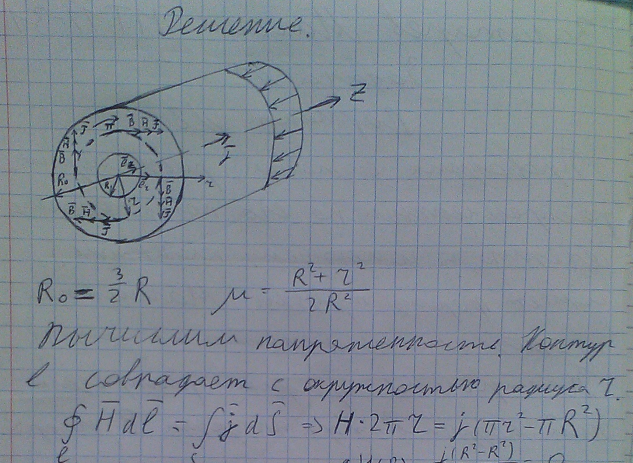 Решение.
Z
R₀ = 3/2 R μ = (R² + r²)/(2R²)
Вычислим напряженность. Контур
l совпадает с окружностью радиуса r.
∮ H̄ dl̄ = ∫ j̄ dS̄ ⇒ H·2πr = j(πr² − πR²)